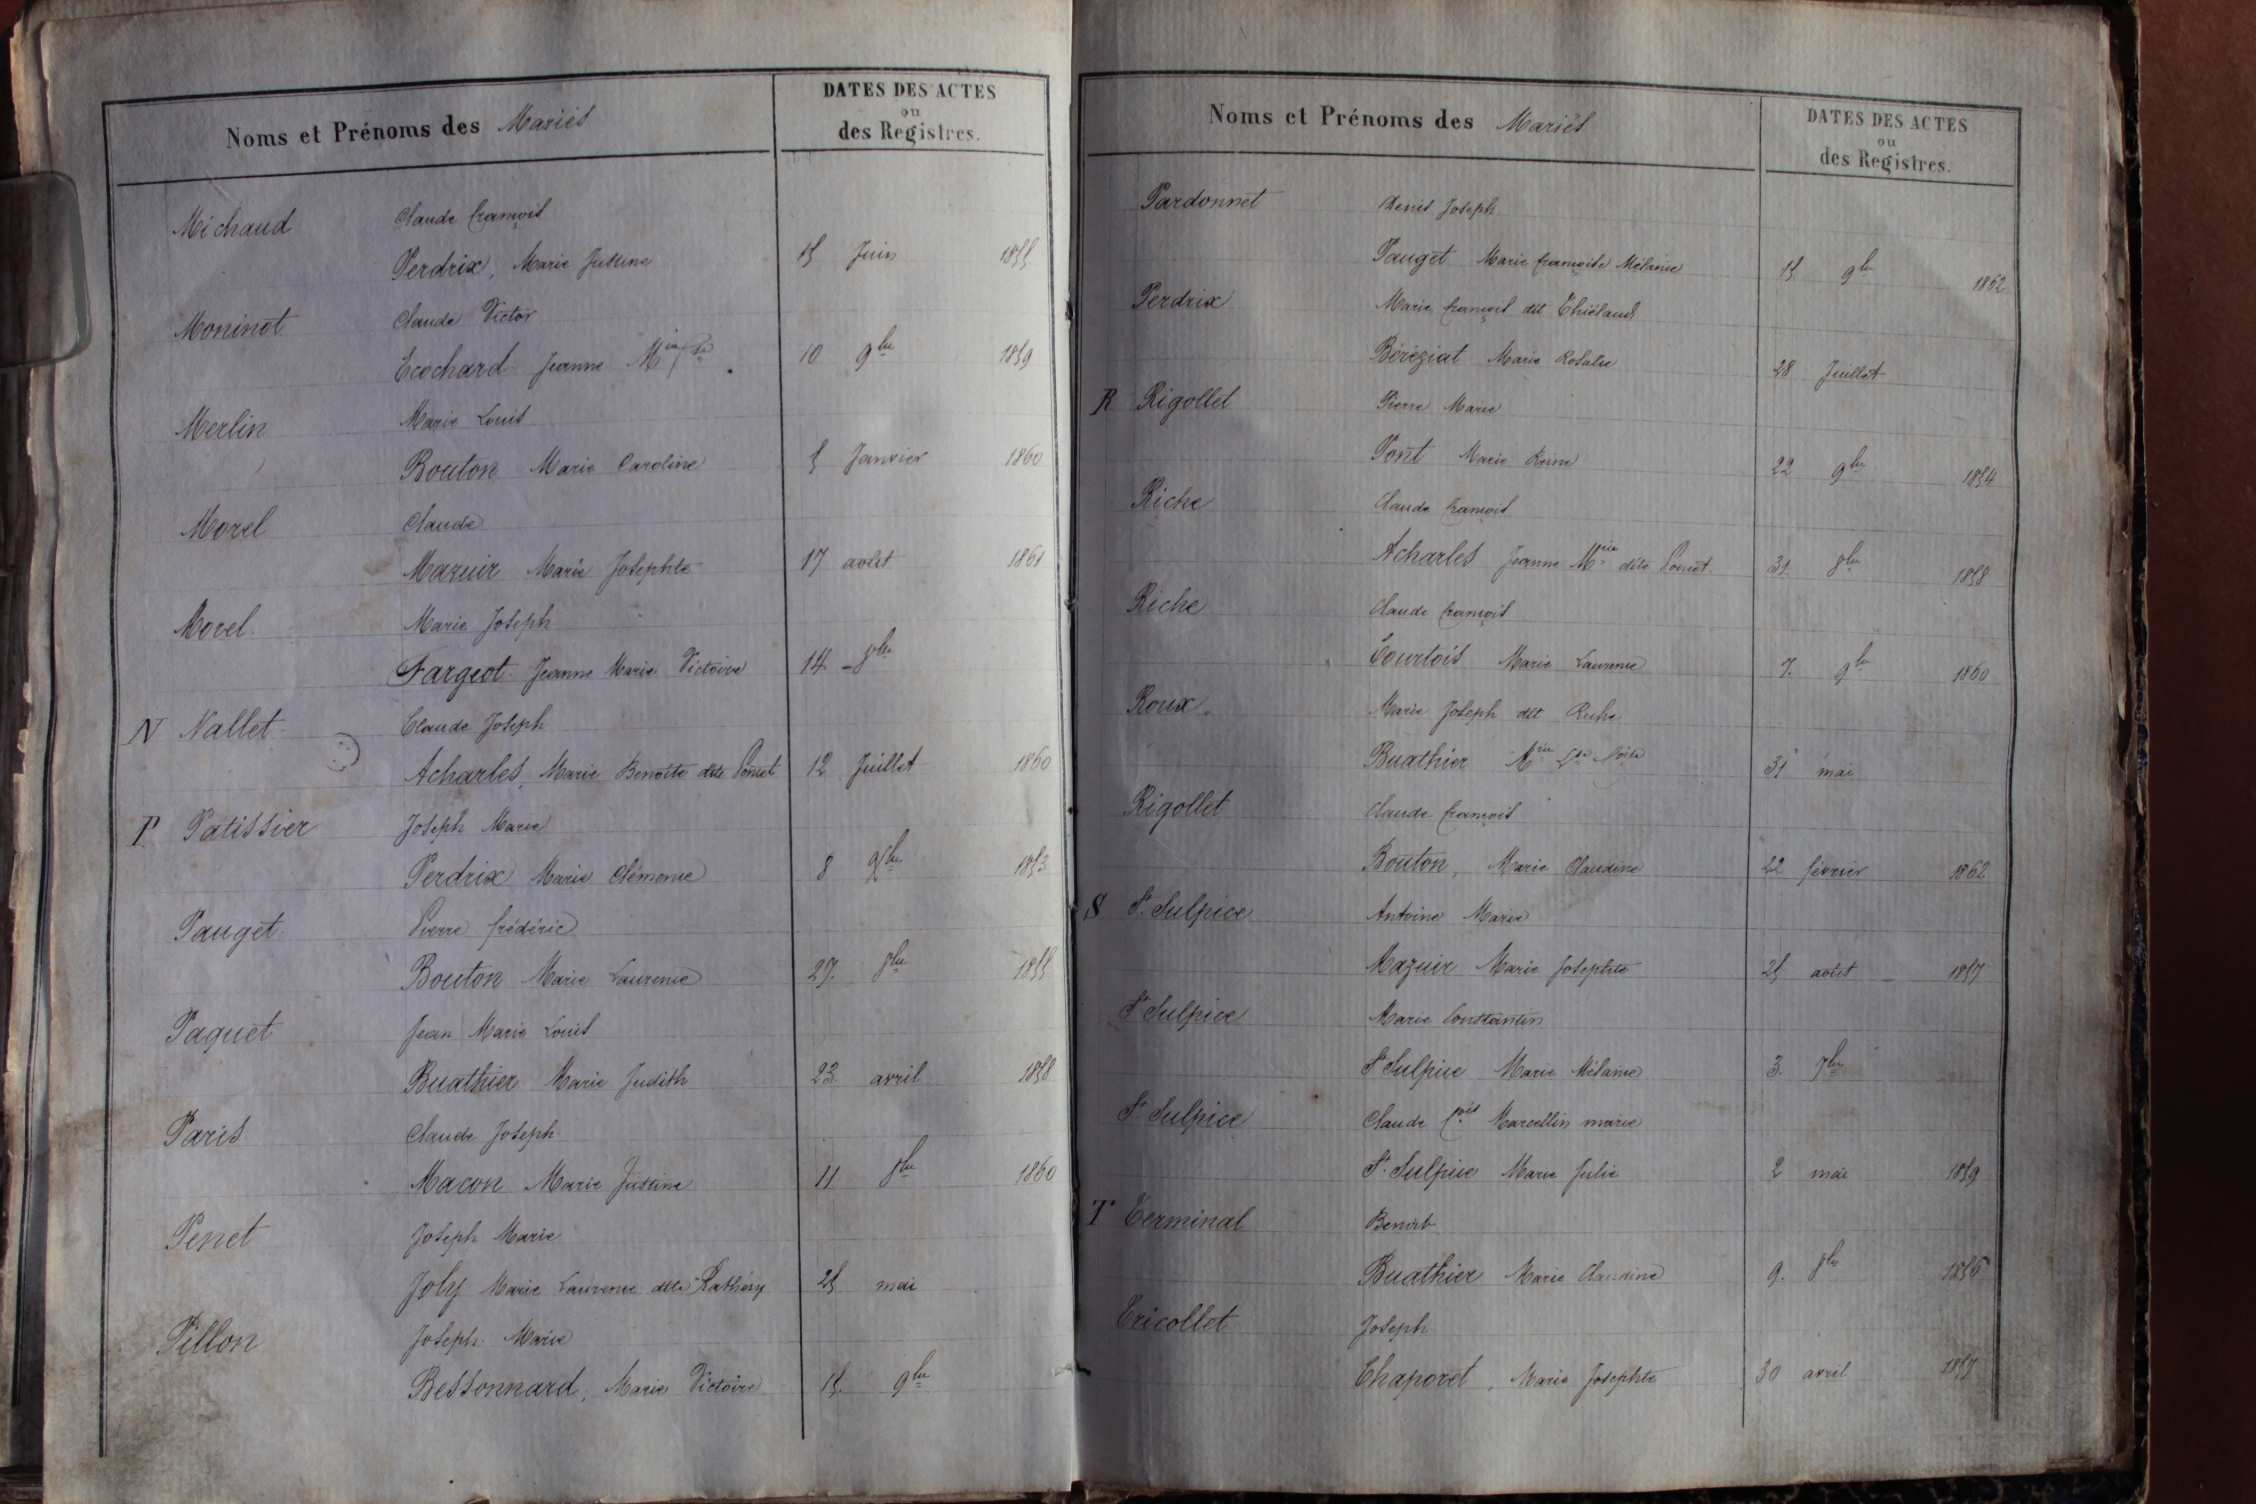 Noms et Prénoms des Mariés
DATES DES ACTES
ou
des Registres.
Michaud Claude françois
Perdrix, Marie Justine 15 Juin 1855
Moninot Claude Victor
Ecochard Jeanne M 10 9bre 1859
Merlin Marie Louis
Bouton Marie Caroline 5 Janvier 1860
Morel Claude
Mazuir Marie Josephte 17 août 1861
Morel Marie Joseph
Fargeot Jeanne Marie Victoire 14 8bre
N Nallet Claude Joseph
Acharles, Marie Benoîte dite Poncet 12 Juillet 1860
P Patissier Joseph Marie
Perdrix Marie Clémence 8 1853
Pauget Pierre frédéric
Bouton Marie Laurence 27. 8bre 1855
Paquet Jean Marie Louis
Buathier Marie Judith 23 avril 1858
Paris Claude Joseph
Macon Marie Justine 11 8bre 1860
Penet Joseph Marie
Joly Marie Laurence dite 25 mai
Pillon Joseph Marie
Bessonnard, Marie Victoire 15 9bre
Noms et Prénoms des Mariés
DATES DES ACTES
ou
des Registres.
Pardonnet Denis Joseph
Pauget Marie françoise Mélanie 15 9bre 1862
Perdrix Marie françois dit
Béréziat Marie Rosalie 28 Juillet
R Rigollet Pierre Marie
Pont Marie Reine 22 9bre 1854
Riche Claude françois
Acharles Jeanne Mie dite Poncet 31 8bre 1858
Riche Claude françois
Courtois Marie Laurence 7. 9bre 1860
Roux Marie Joseph dit Riche
Buathier Mie 31 mai
Rigollet Claude françois
Bouton, Marie Claudine 22 février 1862
S St. Sulpice Antoine Marie
Mazuir Marie Josephte 25 août 1857
St Sulpice Marie Constantin
St Sulpice Marie Mélanie 3. 7bre
St Sulpice Claude fçois Marcellin marie
St. Sulpice Marie Julie 2 mai 1859
T Terminal Benoît
Buathier Marie Claudine 9. 8bre 1856
Tricollet Joseph
Chaporet, Marie Josephte 30 avril 1857